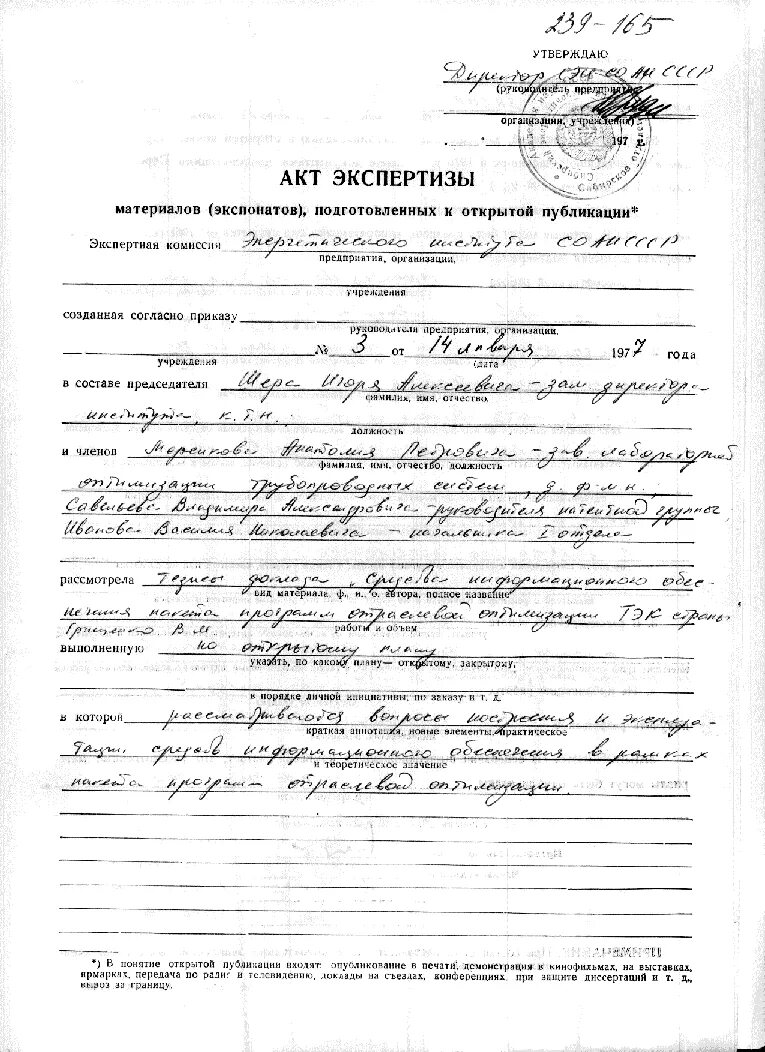 239-165
УТВЕРЖДАЮ
Директор СЭИ СО АН СССР
(руководитель предприятия
организации, учреждения)
197 г.
АКТ ЭКСПЕРТИЗЫ
материалов (экспонатов), подготовленных к открытой публикации*
Экспертная комиссия Энергетического института СО АН СССР
предприятия, организации,
учреждения
созданная согласно приказу
руководителя предприятия, организации,
№ 3 от 14 января 1977 года
учреждения (дата
в составе председателя Шера Игоря Алексеевича - зам. директора
фамилия, имя, отчество
института, к.т.н.
должность
и членов Меренкова Анатолия Петровича - зав. лабораторией
фамилия, имя, отчество, должность
оптимизации трубопроводных систем, д.ф-м.н.,
Савельева Владимира Александровича - руководителя патентной группы,
Иванова Василия Николаевича - начальника I отдела
рассмотрела тезисы доклада "Средства информационного обес-
вид материала ф., и., о. автора, полное название
печения пакета программ отраслевой оптимизации ТЭК страны"
Гриценко В.М. работы и объем
выполненную по открытому плану
указать, по какому плану— открытому, закрытому,
в порядке личной инициативы, по заказу и т. д.
в которой рассматриваются вопросы построения и эксплуа-
краткая аннотация, новые элементы, практическое
тации средств информационного обеспечения в рамках
и теоретическое значение
пакета программ отраслевой оптимизации.
*) В понятие открытой публикации входят: опубликование в печати, демонстрация в кинофильмах, на выставках,
ярмарках, передача по радио и телевидению, доклады на съездах, конференциях, при защите диссертаций и т. д.,
вывоз за границу.